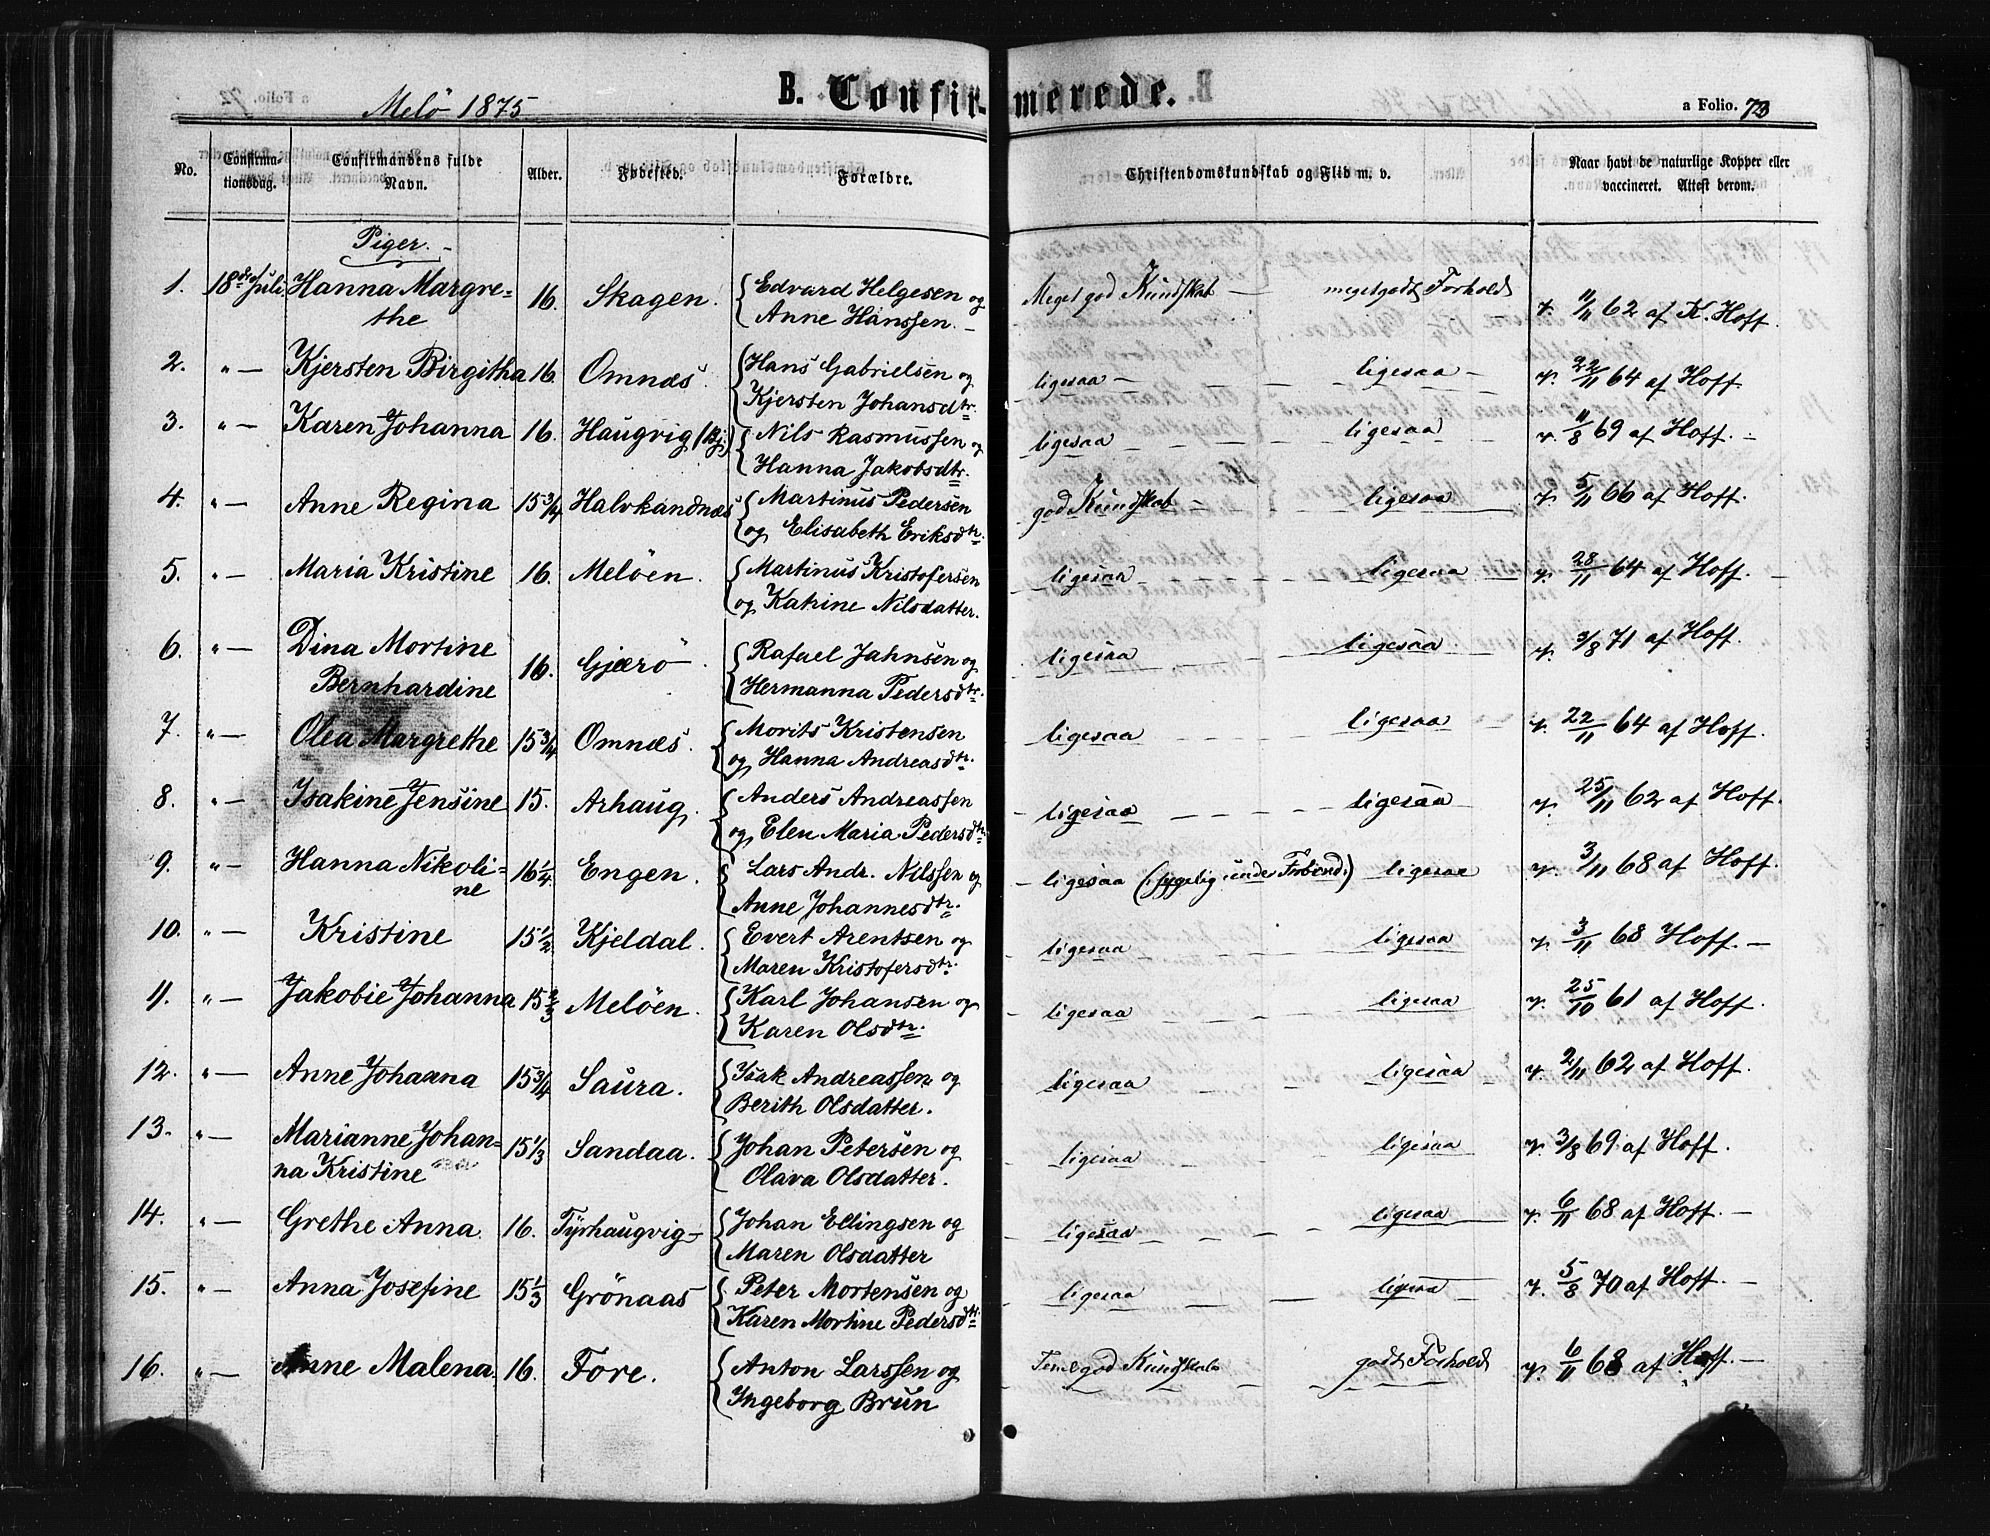 Melö 1875
B. Confir-merede.
a Folio. 73
No.
Confirma-tionsdag.
Confirmandens fulde Navn.
Alder.
Fødested.
Forældre.
Christendomskundskab og Flid m. v.
Naar havt de naturlige Kopper eller vaccineret. Attest derom.
Piger. -
1. 18de Juli Hanna Margre-the 16. Skagen. Edvard Helgesen og Anne Hanssen. - Meget god Kundskab - meget godt Forhold v. 11/11 62 af K. Hoff.
2. " — Kjersten Birgitha 16. Omnæs. Hans Gabrielsen og Kjersten Johansdtr. ligesaa - ligesaa - v. 22/11 64 af Hoff.
3. " — Karen Johanna 16. Haugvig (Bj.) Nils Rasmussen og Hanna Jakobsdtr. ligesaa ligesaa v. 11/8 69 af Hoff. -
4. " — Anne Regina 15 3/4 Halvkandnæs Martinus Pedersen og Elisabeth Eriksdtr. god Kundskab - ligesaa v. 5/11 66 af Hoff.
5. " — Maria Kristine 16. Melöen. Martinus Kristofersen og Katrine Nilsdatter. ligesaa ligesaa v. 28/11 64 af Hoff. -
6. " — Dina Mortine Bernhardine 16. Gjærö. Rafael Jahnsen og Hermanna Pedersdtr. ligesaa ligesaa v. 3/8 71 af Hoff.
7. " — Olea Margrethe 15 3/4 Omnæs. Morits Kristensen og Hanna Andreasdtr. ligesaa ligesaa v. 22/11 64 af Hoff.
8. " — Isakine Jensine 15. Arhaug. Anders Andreassen og Elen Maria Pedersdtr. ligesaa ligesaa v. 25/11 62 af Hoff.
9. " — Hanna Nikoli-ne 16 1/4 Engen. Lars Andr. Nilssen og Anne Johannesdtr. ligesaa (sygelig under Forbered.) ligesaa v. 3/11 68 af Hoff.
10. " — Kristine 15 1/2 Kjeldal. Evert Arentsen og Maren Kristofersdtr. ligesaa ligesaa v. 3/11 68 Hoff. —
11. " — Jakobie Johanna 15 2/3 Melöen. Karl Johansen og Karen Olsdtr. ligesaa ligesaa v. 25/10 61 af Hoff.
12. " — Anne Johanna 15 3/4 Saura. Isak Andreassen og Berith Olsdatter. ligesaa ligesaa v. 2/11 62 af Hoff.
13. " — Marianne Johan-na Kristine 15 1/3 Sandaa. Johan Petersen og Olava Olsdatter. ligesaa ligesaa v. 3/8 69 af Hoff.
14. " — Grethe Anna 16. Tyrhaugvig - Johan Ellingsen og Maren Olsdatter ligesaa ligesaa v. 6/11 68 af Hoff. -
15. " — Anna Josefine 15 1/3 Grönaas Peter Mortensen og Karen Mortine Pedersdtr. ligesaa ligesaa v. 5/8 70 af Hoff. -
16. " — Anne Malena. 16. Fore. Anton Larssen og Ingeborg Brun Temel. god Kundskab godt Forhold v. 6/11 68 af Hoff. -